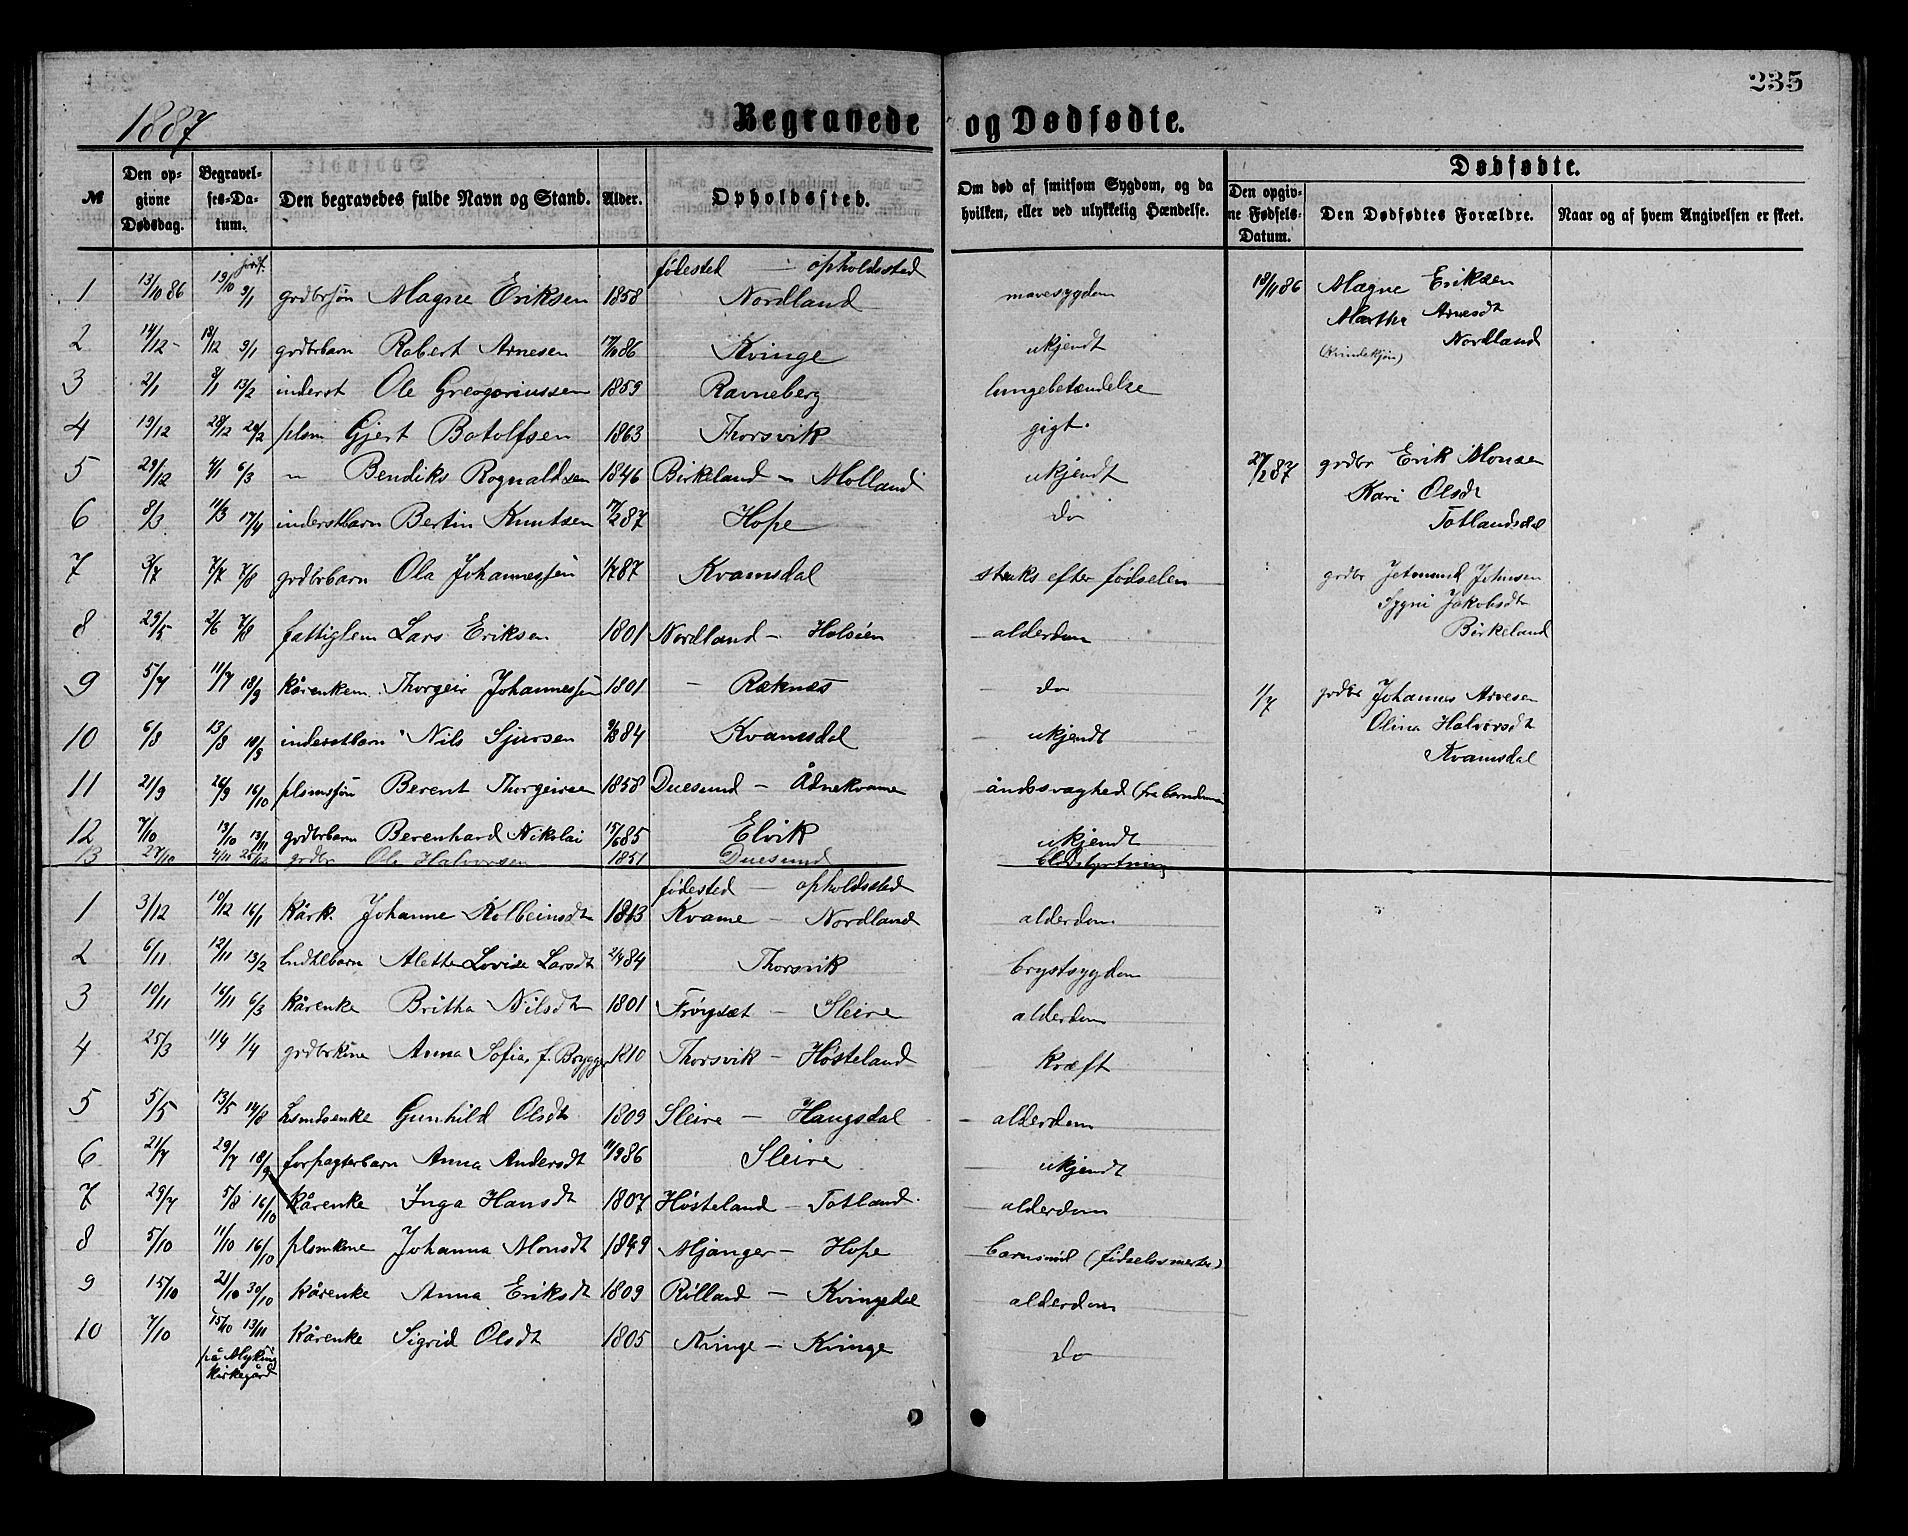 235
1887 Begravede og Dødfødte.
№ Den opgivne Dødsdag. Begravelses-Datum. Den begravedes fulde Navn og Stand. Alder. Opholdssted. Om død af smitsom Sygdom, og da hvilken, eller ved ulykkelig Hændelse. Dødfødte. Den opgivne Fødsels-Datum. Den Dødfødtes Forældre. Naar og af hvem Angivelsen er skeet.
fødested — opholdssted
1 13/10 86 19/10 jordf. 9/1 grdbrsøn Magne Eriksen 1858 Nordland mavesygdom
2 14/12 18/12 9/1 grdbrbarn Robert Arnesen 17/10 86 Kvinge ukjendt
3 2/1 8/1 13/2 inderst Ole Greogoriussen 1859 Ravneberg lungebetændelse
4 19/12 28/12 20/2 plsm Gjert Botolfsen 1863 Thorsvik gigt.
5 29/12 4/1 6/3 — Bendiks Rognaldsen 1846 Birkeland — Molland ukjendt
6 8/3 11/3 17/4 inderstbarn Bertin Knutsen 17/2 87 Hope do
7 3/7 7/7 7/8 grdbrbarn Ola Johannessen 1/7 87 Kvamsdal straks efter fødselen
8 29/5 2/6 7/8 fattiglem Lars Eriksen 1801 Nordland — Halsien alderdom
9 5/7 11/7 18/9 kårenkem. Thorgeir Johannessen 1801 — Reknæs do
10 6/8 13/8 18/9 inderstbarn Nils Sjursen 9/3 84 Kvamsdal ukjendt
11 21/9 26/9 16/10 plsmsøn Berent Thorgeirsen 1858 Duesund — Ådnekvame åndssvaghed (fra barndommen
12 7/10 13/10 13/11 grdbrbarn Berenhard Nikolai 15/6 85 Elvik ukjendt
13 27/10 4/11 25/12 grdbr Ole Halvorsen 1851 Duesund blodstyrtning
fødested — opholdssted
1 3/12 10/12 16/1 kårk. Johanne Kolbeinsdt 1813 Kvame — Nordland alderdom
2 6/11 12/11 13/2 Aletthe Lovise Larsdt 2/4 84 Thorsvik brystsygdom
3 10/11 16/11 6/3 kårenke Britha Nilsdt 1801 Frøyset — Sleire alderdom
4 25/3 1/4 1/4 grdbrkone Anna Sofia, f. Brygger 1810 Thorsvik — Høsteland kræft
5 5/5 13/5 14/8 hsmdsenke Gunhild Olsdt 1809 Sleire — Haugsdal alderdom
6 21/7 29/7 18/9 forpagterbarn Anna Andersdt 11/9 86 Sleire ukjendt
7 29/7 5/8 16/10 kårenke Inga Hansdt 1807 Høsteland — Totland alderdom
8 5/10 11/10 16/10 plsmkone Johanna Monsdt 1849 Mjanger — Hope barnsnød (fødselssmerter)
9 15/10 21/10 30/10 kårenke Anna Eriksdt 1809 Rilland — Kvingedal alderdom
10 7/10 15/10 13/11 kårenke Sigrid Olsdt 1805 Kvinge — Kvinge do
på Myking
kirkegård
18/11 86 Magne Eriksen
Martha Arnesdt
Nordland
(Kvindekjøn)
27/2 87 grdbr Erik Monsen
Kari Olsdt
Totlandsdal
grdbr Jetmund Johnsen
Sygni Jakobsdt
Birkeland
1/7 grdbr Johannes Arnesen
Olina Halvorsdt
Kvamsdal